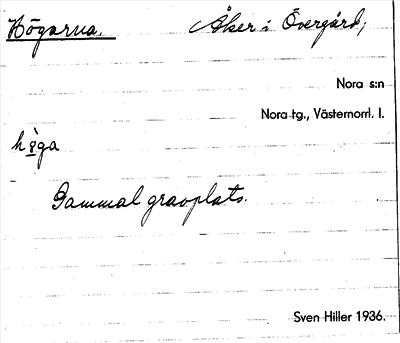 Högarna. Åker i Övergård,
Nora s:n
Nora tg., Västernorrl. l.
Gammal gravplats.
Sven Hiller 1936.